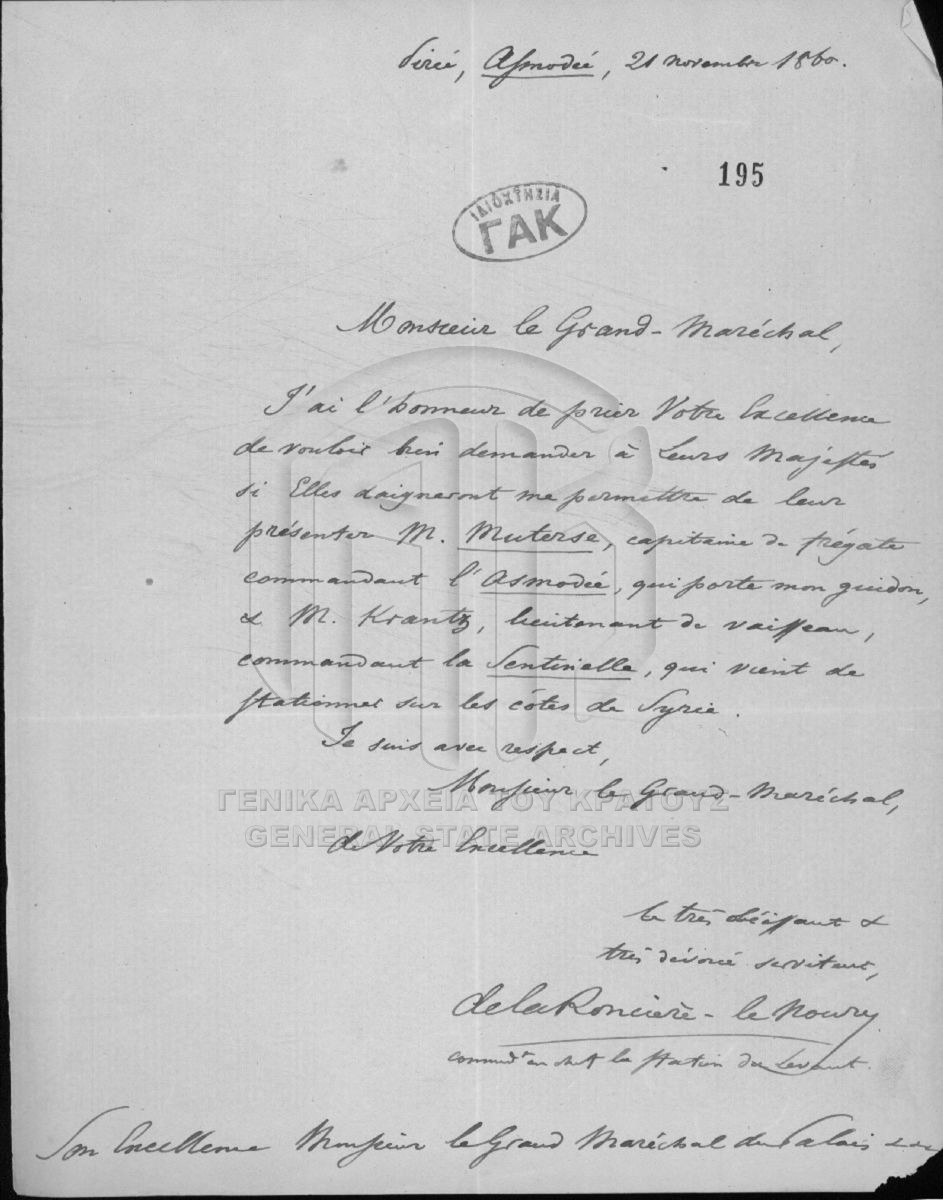 Pirée, Asmodée, 21 novembre 1860.
195
ΙΔΙΟΚΤΗΣΙΑ
ΓΑΚ
Monsieur le Grand-Maréchal,
J'ai l'honneur de prier Votre Excellence
de vouloir bien demander à Leurs Majestés
si Elles daigneront me permettre de leur
présenter M. Muterse, capitaine de frégate
commandant l'Asmodée, qui porte mon guidon,
& M. Krantz, lieutenant de vaisseau,
commandant la Sentinelle, qui vient de
stationner sur les côtes de Syrie.
Je suis avec respect,
Monsieur le Grand-Maréchal,
ΓΕΝΙΚΑ ΑΡΧΕΙΑ ΤΟΥ ΚΡΑΤΟΥΣ
GENERAL STATE ARCHIVES
de Votre Excellence
le très obéissant &
très dévoué serviteur,
de la Roncière-le Noury
command.t en chef la station du Levant.
Son Excellence Monsieur le Grand Maréchal du Palais &c &c